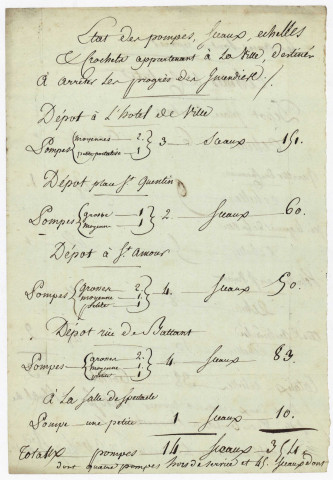 Etat des pompes, Sceaux, echelles
& Crochets appartenant à la Ville, destinés
à arreter les progrès des Incendies./.
Dépot à L'hotel de Ville
Pompes { moyennes — 2. } 3 — Sceaux — 151.
petite portative 1
Dépot place St Quentin
Pompes { grosse — 1 } 2 Sceaux — 60.
moyenne — 1
Dépot à St. Amour
Pompes { grosses 2. } 4. Sceaux — 50.
moyenne 1
petite 1
Dépot rüe de Battant
Pompes — { grosses 2. } 4 Sceaux — 83.
moyenne 1
petite 1
à la Salle de Spectacle
Pompe une petite — 1 Sceaux 10.
Totaux pompes 14 Sceaux 354.
dont quatre pompes hors de service et 45. Sceaux dont